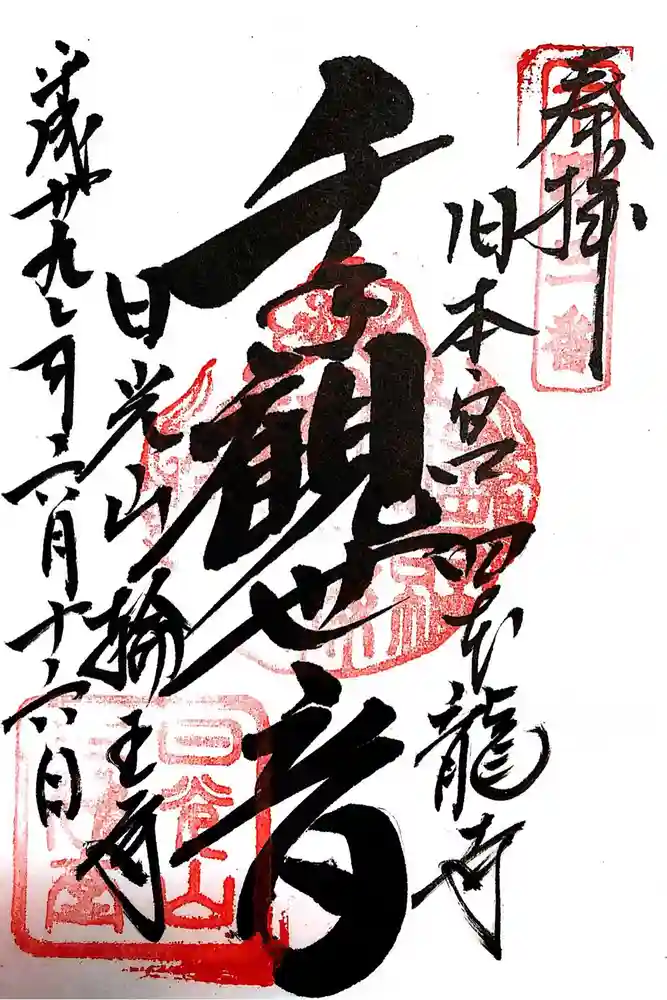 奉拝
旧本宮四本龍寺
千手観世音
日光山輪王寺
平成廿九年六月十六日
日光山